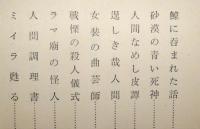 鯨に呑まれた話
砂漠の青い死神
人間なめし皮譚
逞しき哉人間
女装の曲芸師
戦慄の殺人儀式
ラマ廟の怪人
人間調理書
ミイラ甦る